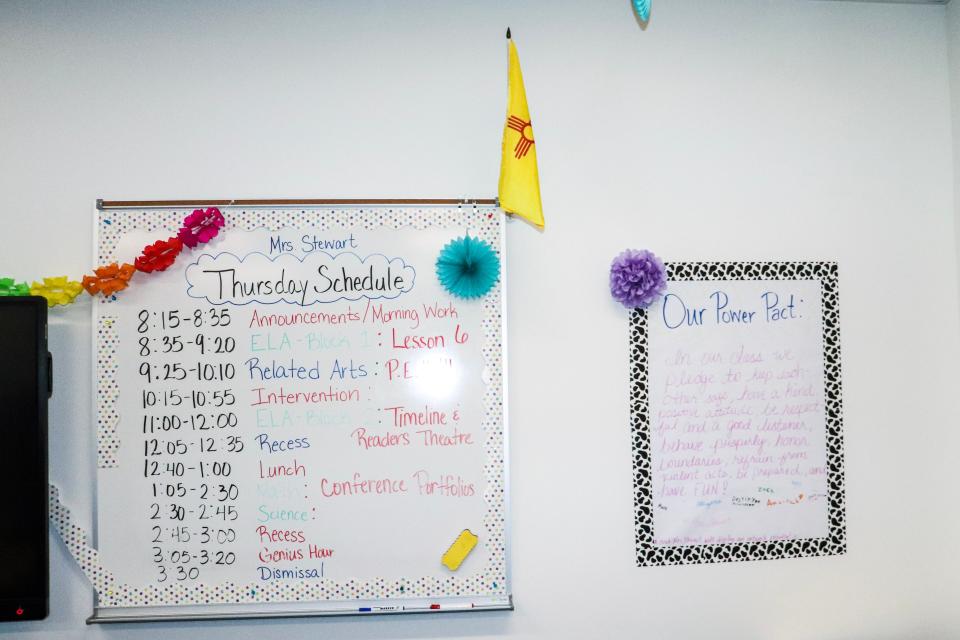 Mrs. Stewart
Thursday Schedule
8:15-8:35 Announcements/Morning Work
8:35-9:20 ELA-Block 1: Lesson 6
9:25-10:10 Related Arts: P.E.
10:15-10:55 Intervention:
11:00-12:00 ELA-Block 2: Timeline &
12:05-12:35 Recess Readers Theatre
12:40-1:00 Lunch
1:05-2:30 Math: Conference Portfolios
2:30-2:45 Science:
2:45-3:00 Recess
3:05-3:20 Genius Hour
3:30 Dismissal
Our Power Pact:
In our class we
pledge to keep each
other safe, have a kind
positive attitude, be respect
ful and a good listener,
behave properly, honor
boundaries, refrain from
violent acts, be prepared, and
have FUN!
Zach
Destiny